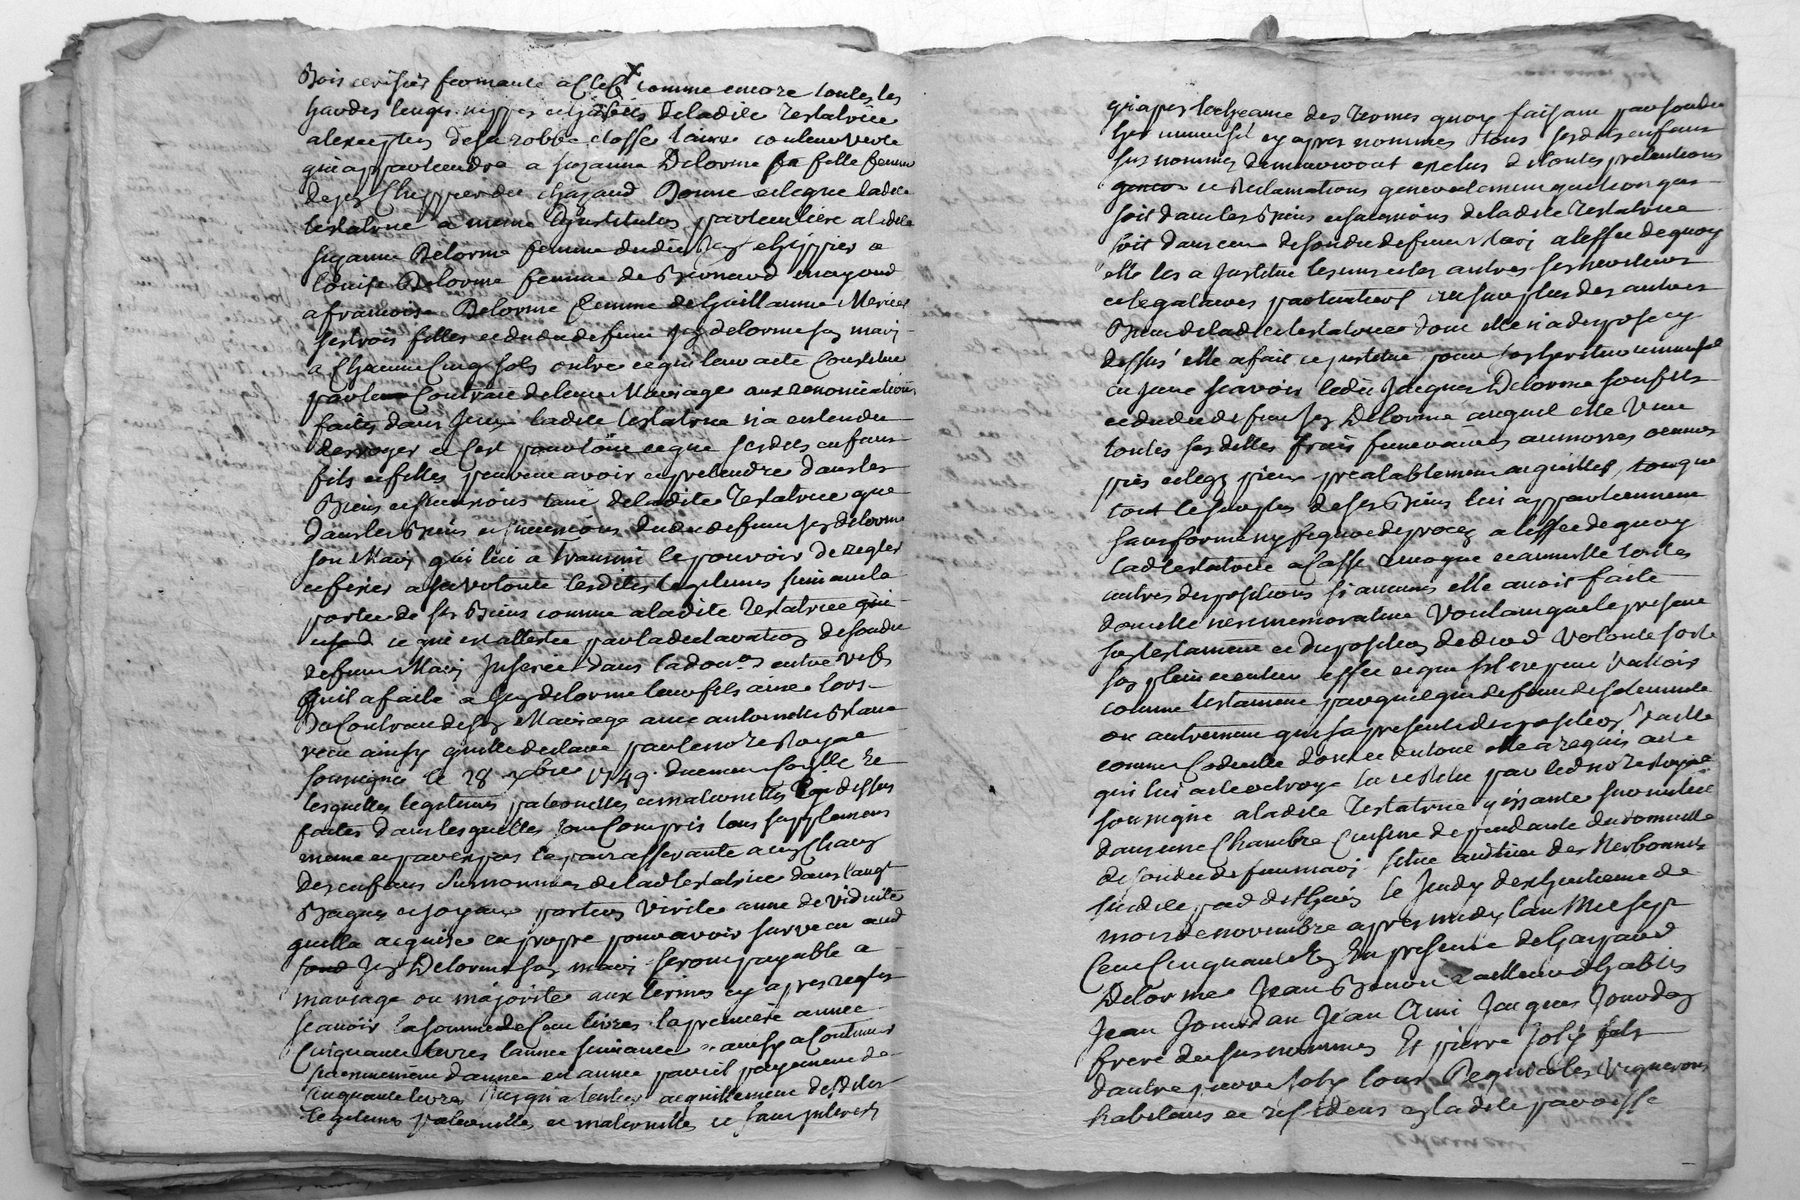 Bois cerisier fermante a Clef comme encore toutes les
hardes linges nippes et habits de ladite Testatrice
alexception de sa robbe etoffe laine couleur verte
qui appartiendra a Suzanne Delorme sa fille femme
de jes Chippier du chazaud Donne et legue ladte
testatrice a meme d'institution particuliere a ladite
suzanne Delorme femme dudit jes chippier a
Louise Delorme femme de Bernard mayoud
a francoise Delorme femme de Guillaume Mercier
ses trois filles et dudit defunt jes delorme son mari
a Chacune Cinq sols outre ce qui leur a ete Constitué
par leur Contrat de leur Mariage aux renonciations
faites dans iceux ladite testatrice n'a entendu
derroger et C'est pour tout ce que sesdits enfans
fils et filles peuvent avoir et pretendre dans les
Biens et successions tant de ladite Testatrice que
dans les Biens et successions dudit defunt jes delorme
son Mari qui lui a transmi le pouvoir de regler
et fixer a sa volonté lesdites legitimes suivant la
portée de ses Biens comme a ladite Testatrice qui
ce qui est attesté par la declaration de sondit
defunt Mari Inserée dans la don.on entre vifs
quil a faite a jes delorme leur fils ainé lors
Du Contrat de son Mariage avec antoinette
recu ainsy qu'elle declare par le no.re Royal
soussigné le 28 xbre 1749.
lesquelles legitimes paternelles et maternelles cy dessus
faites dans lesquelles sont Compris tous supplemens
meme et
Des enfans surnommés de ladte testatrice dans l'augt
Bagues et joyaux portion virile année de viduité
quelle a acquise en propre pour avoir survecu aud
jes Delorme son mari seront payable a
mariage ou majorité aux termes cy apres reglés
scavoir la somme de Cent livres la premiere année
Cinquante livres l'année suivante et ainsy a Continuer
d'année en année pareil payement de
cinquante livres jusqu'a l'entier acquittement desdites
legitimes paternelles et maternelles et sans interets
qu'apres lecheance des termes quoy faisant par sondit
her universel cy apres nommé tous sesdits enfans
sus nommés demeureront exclus de toutes pretentions
et Reclamations generalement quelconques
soit dans les Biens et successions de ladite Testatrice
soit dans ceux de sondit defunt Mari a l'effet de quoy
elle les a Institué les uns et les autres ses heritiers
et legataires particuliers et au surplus des autres
Biens de ladite testatrice dont elle n'a disposé cy
dessus elle a fait et institué pour son heritier universel
scavoir ledit Jacques Delorme son fils
et dudit defunt jes Delorme auquel elle veut
toutes ses dettes frais funeraires aumosnes oeuvres
pies et legs pieux prealablement acquittés, tout que
tout le surplus de ses Biens lui appartiennent
sans forme ny figure de procez a l'effet de quoy
ladte testatrice a Cassé revoqué et annullé toutes
autres dispositions si aucunes elle avoit faite
dont elle n'est memorative Voulant que le present
son testament et disposition de derd volonté sorte
son plein et entier effet et que s'il ne peut valloir
comme testament par quelque defaut de solemnité
ou autrement que sa presente disposition vaille
comme Codicille dont et du tout elle a requis acte
qui lui a été octroyé lu et relu par led no.re Royal
soussigné a ladite Testatrice gissante sur un lit
dans une Chambre Cuisine dependante du domicille
de sondit defunt mari situé au lieu des Nerbonnes
susdite par le Jeudy dixhuitieme de
mois de novembre apres midy l'an Mil sept
Cent Cinquante En presence de Gaspard
Delorme Jean Benoit tailleur d'habits
Jean Jourdan Jean Ami Jacques Jourdan
frere du susnommé Et pierre Joly fils
d'autre pierre Joly tous Requis les vignerons
habitans et residens en ladite paroisse